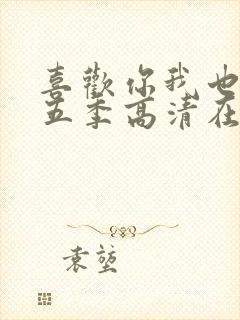 喜歡你我也
五季高清在
袁堃